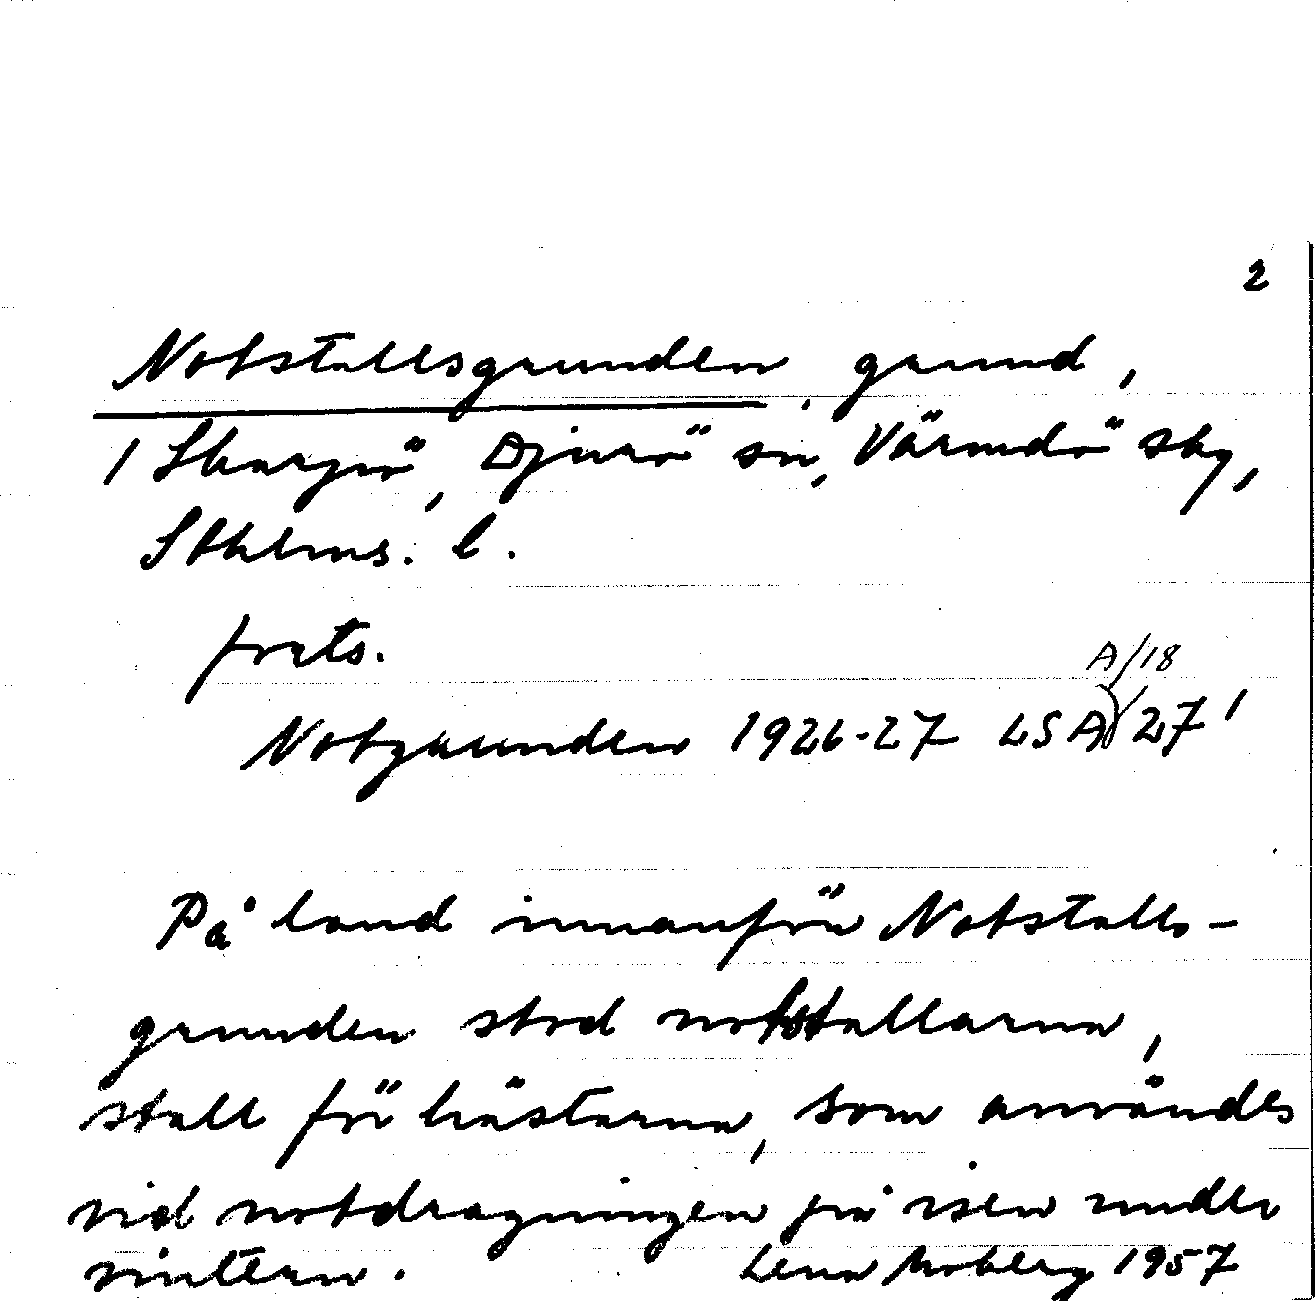 2
Notstallsgrunden, grund,
/ Skarpö, Djurö sn, Värmdö skg,
Sthlms. l.
forts.
A/18
Notgrunden 1926-27 LSA 27'
På land innanför Notstalls-
grunden stod notstallarna,
stall för hästarna, som användes
vid notdragningen på isen under
vintern. Lena Moberg 1957